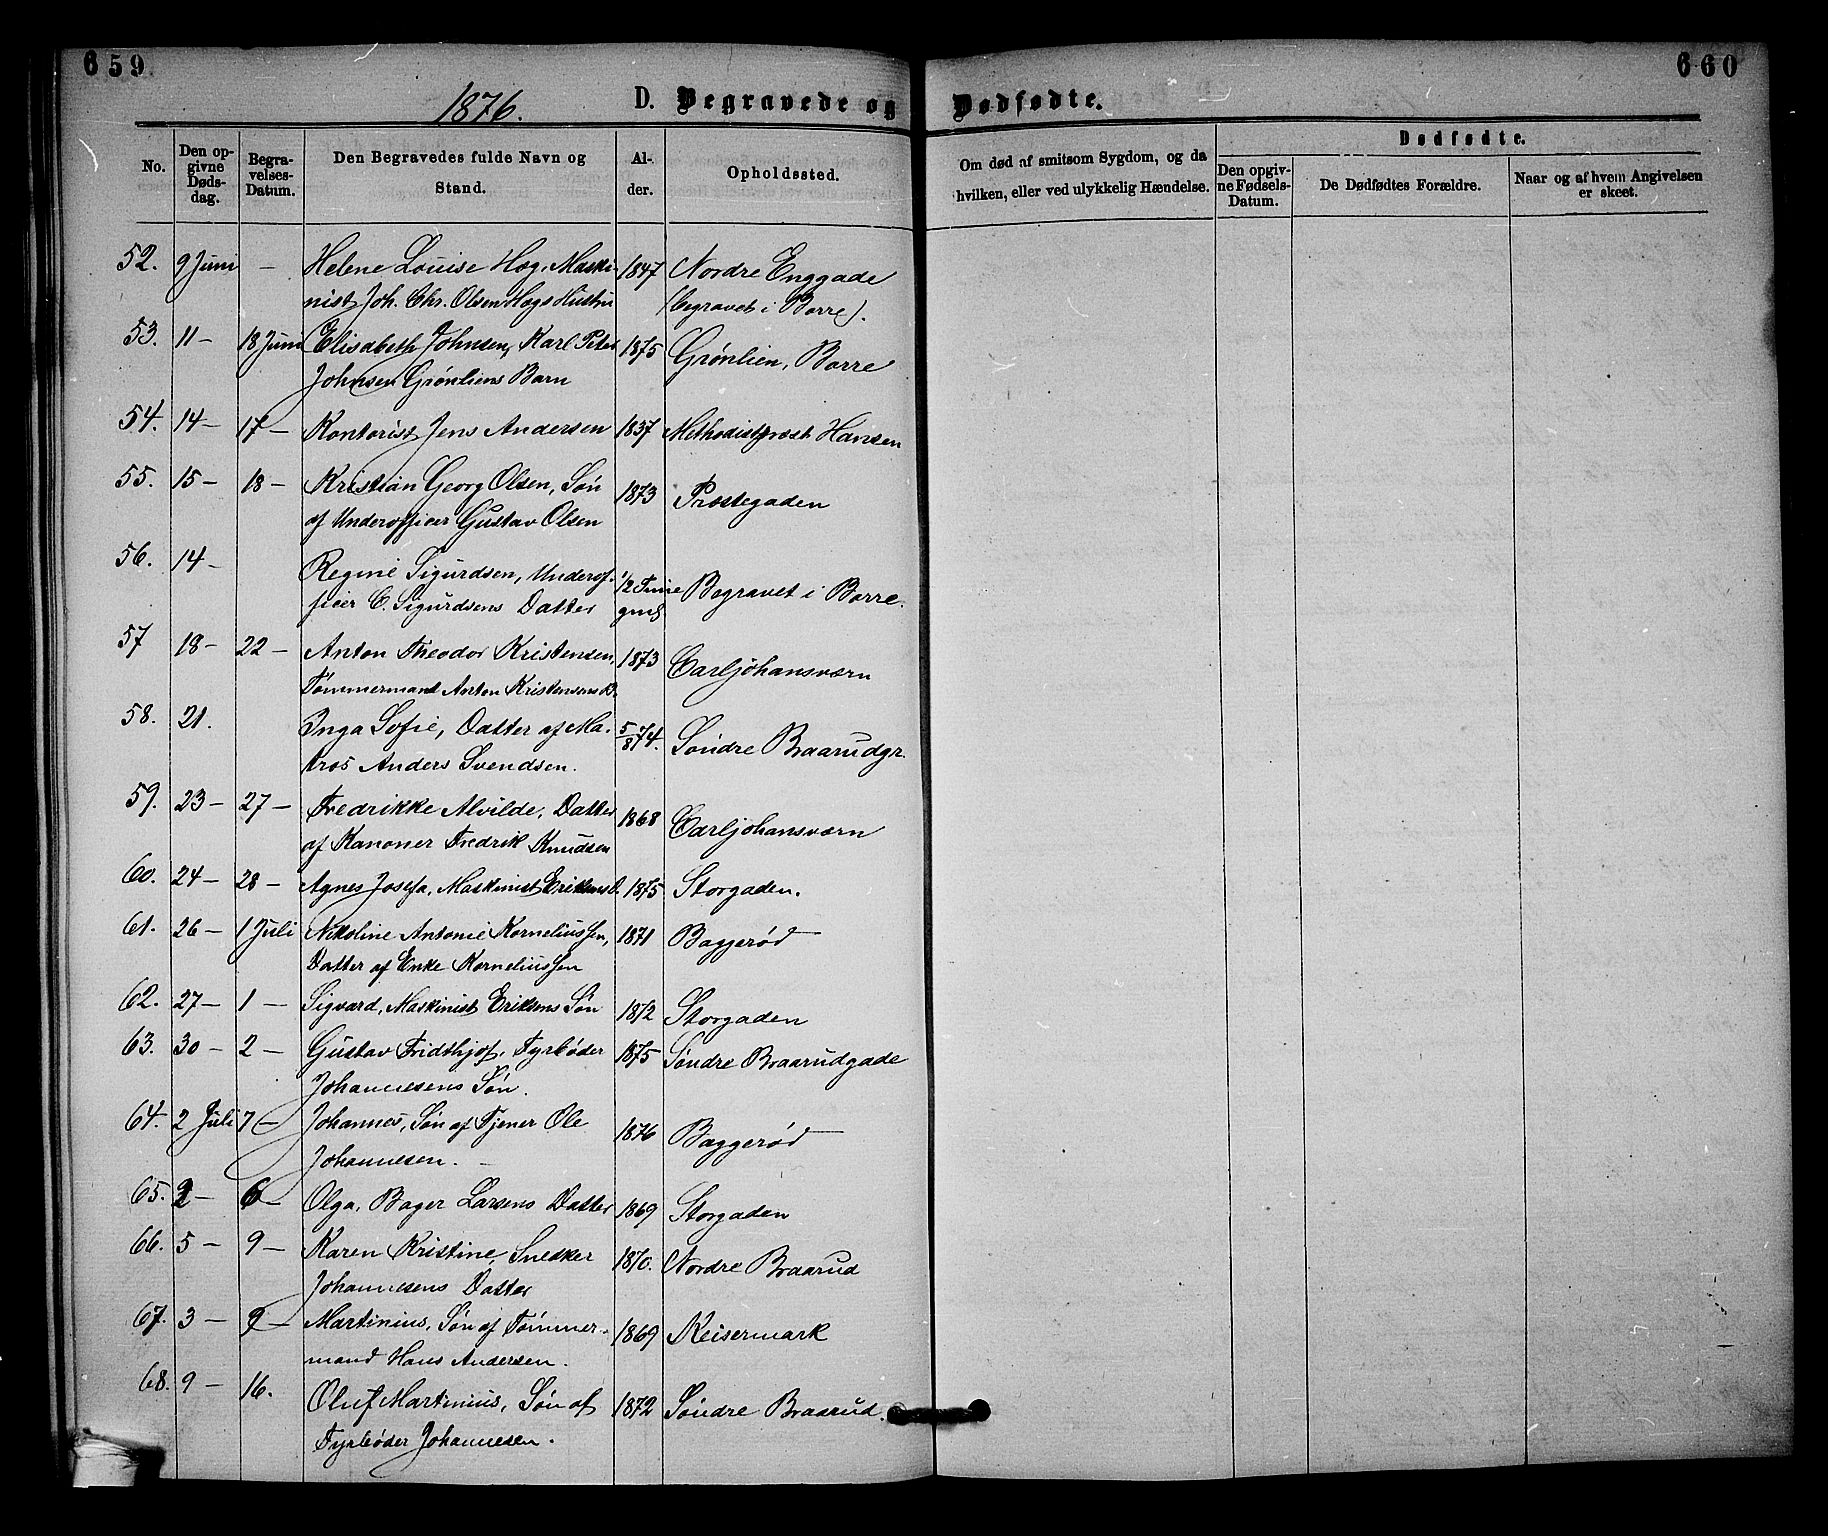 659
660
1876.
D. Begravede og Dødfødte.
No.
Den opgivne Dødsdag.
Begravelses-Datum.
Den Begravedes fulde Navn og Stand.
Alder.
Opholdssted.
Om død af smitsom Sygdom, og da hvilken, eller ved ulykkelig Hændelse.
Dødfødte.
Den opgivne Fødsels-Datum.
De Dødfødtes Forældre.
Naar og af hvem Angivelsen er skeet.
52. 9 Juni – Helene Louise Høg, Maski- 1847 Nordre Enggade
nist Joh. Chr. Olsen Høgs Hustru (begravet i Borre).
53. 11 – 18 Juni Elisabeth Johnsen, Karl Peter 1875 Grønlien, Borre
Johnsen Grønliens Barn
54. 14 – 17 – Kontorist Jens Andersen 1837 Methodistpræst Hansen
55. 15 – 18 – Kristian Georg Olsen, Søn 1873 Prestegaden
af Underofficer Gustav Olsen
56. 14 – Regine Sigurdsen, Underof- 1/2 Time Begravet i Borre.
ficer C. Sigurdsens Datter gml
57 18 – 22 – Anton Theodor Kristensen, 1873 Carljohansværn
Tømmermand Anton Kristensens B.
58. 21. Inga Sofie, Datter af Ma- 5/8 74. Søndre Braarudgr.
tros Anders Svendsen.
59. 23 – 27 – Fredrikke Alvilde, Datter 1868 Carljohansværn
af Kanoner Fredrik Knudsen
60. 24 – 28 – Agnes Josefa, Maskinist Eriksens D. 1875 Storgaden.
61. 26 – 1 Juli Nikoline Antonie Korneliussen, 1871 Baggerød
Datter af Enke Korneliussen
62. 27 – 1 – Sigvard, Maskinist Eriksens Søn 1872 Storgaden
63. 30 – 2 – Gustav Fridthjof, Fyrbøder 1875 Søndre Braarudgade
Johannesens Søn.
64. 2 Juli 7 – Johannes, Søn af Tjener Ole 1876 Baggerød
Johannesen. –
65. 2 – 6 – Olga, Bager Larsens Datter 1869 Storgaden
66. 5 – 9 – Karen Kristine, Snedker 1870. Nordre Braarud
Johannesens Datter
67. 3 – 9 – Martinius, Søn af Tømmer- 1869 Keisermark
mand Hans Andersen.
68. 9 – 16. Oluf Martinius, Søn af 1872 Søndre Braarud.
Fyrbøder Johannesen.